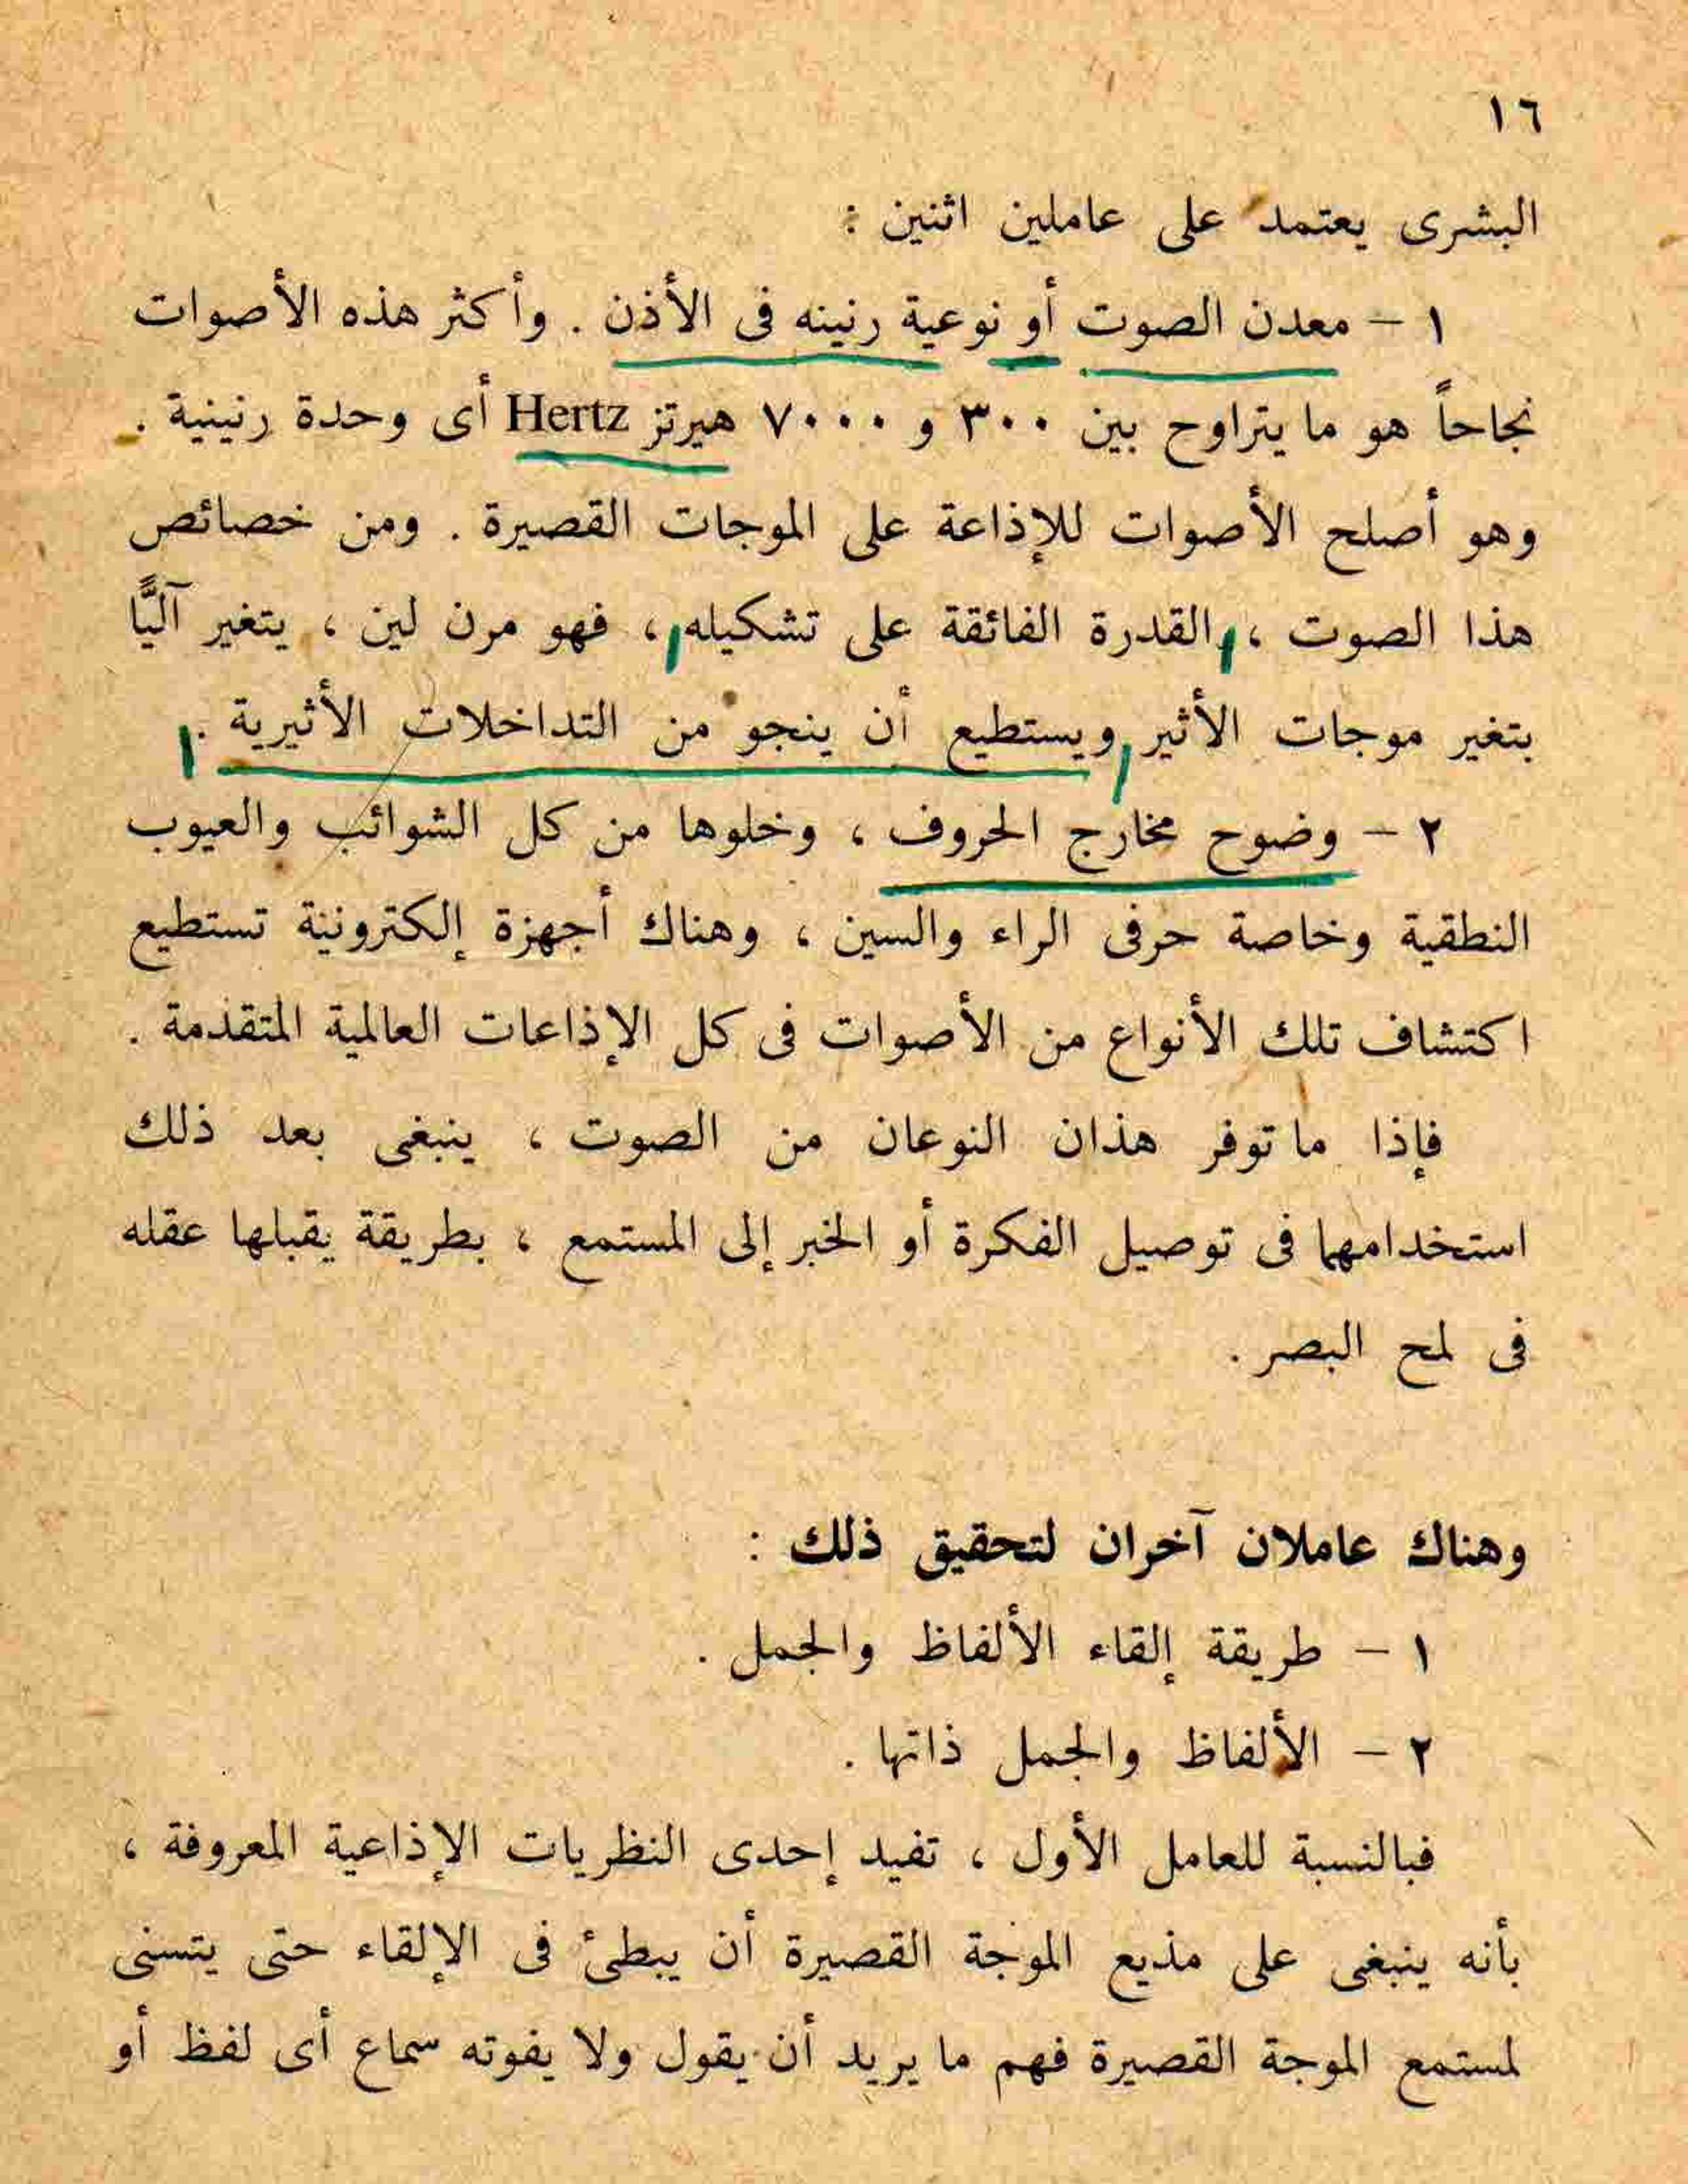 ١٦
البشرى يعتمد على عاملين اثنين :
١ – معدن الصوت أو نوعية رنينه فى الأذن . وأكثر هذه الأصوات
نجاحاً هو ما يتراوح بين ٣٠٠ و ٧٠٠٠ هيرتز Hertz أى وحدة رنينية .
وهو أصلح الأصوات للإذاعة على الموجات القصيرة . ومن خصائص
هذا الصوت ، القدرة الفائقة على تشكيله ، فهو مرن لين ، يتغير آليًّا
بتغير موجات الأثير ويستطيع أن ينجو من التداخلات الأثيرية .
٢ – وضوح مخارج الحروف ، وخلوها من كل الشوائب والعيوب
النطقية وخاصة حرفى الراء والسين ، وهناك أجهزة إلكترونية تستطيع
اكتشاف تلك الأنواع من الأصوات فى كل الإذاعات العالمية المتقدمة .
فإذا ما توفر هذان النوعان من الصوت ، ينبغى بعد ذلك
استخدامهما فى توصيل الفكرة أو الخبر إلى المستمع ، بطريقة يقبلها عقله
فى لمح البصر .
وهناك عاملان آخران لتحقيق ذلك :
١ – طريقة إلقاء الألفاظ والجمل .
٢ – الألفاظ والجمل ذاتها .
فبالنسبة للعامل الأول ، تفيد إحدى النظريات الإذاعية المعروفة ،
بأنه ينبغى على مذيع الموجة القصيرة أن يبطئ فى الإلقاء حتى يتسنى
لمستمع الموجة القصيرة فهم ما يريد أن يقول ولا يفوته سماع أى لفظ أو